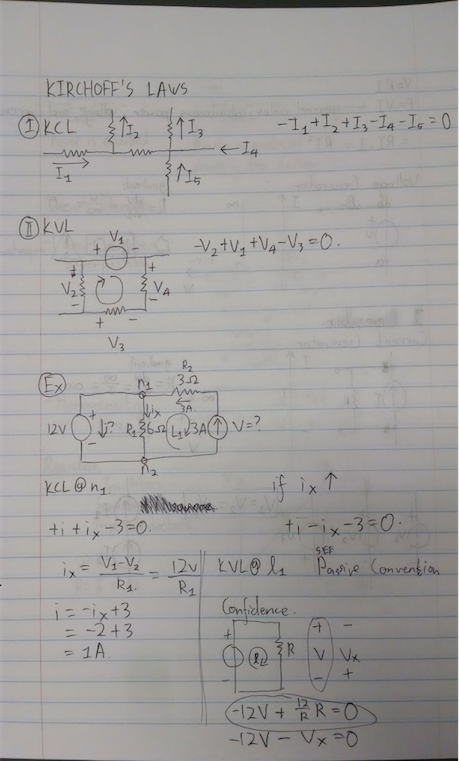 KIRCHOFF'S LAWS
I KCL
I₂
I₃
I₄
I₁
I₅
-I₁+I₂+I₃-I₄-I₅=0
II KVL
+ V₁ -
+
V₂
-
+
V₄
-
+ -
V₃
-V₂+V₁+V₄-V₃=0.
Ex
n₁
R₂
3Ω
3A
12V
+
-
i?
iₓ
R₁
6Ω
L₁
3A
V=?
n₂
KCL@n₁
+i+iₓ-3=0.
if iₓ↑
+i-iₓ-3=0.
iₓ = V₁-V₂/R₁. = 12V/R₁
i=-iₓ+3
= -2+3
= 1A.
KVL@l₁
Passive Convention
Confidence.
+
-
R
+
V
-
-
Vₓ
+
-12V + 12/R R=0
-12V - Vₓ=0